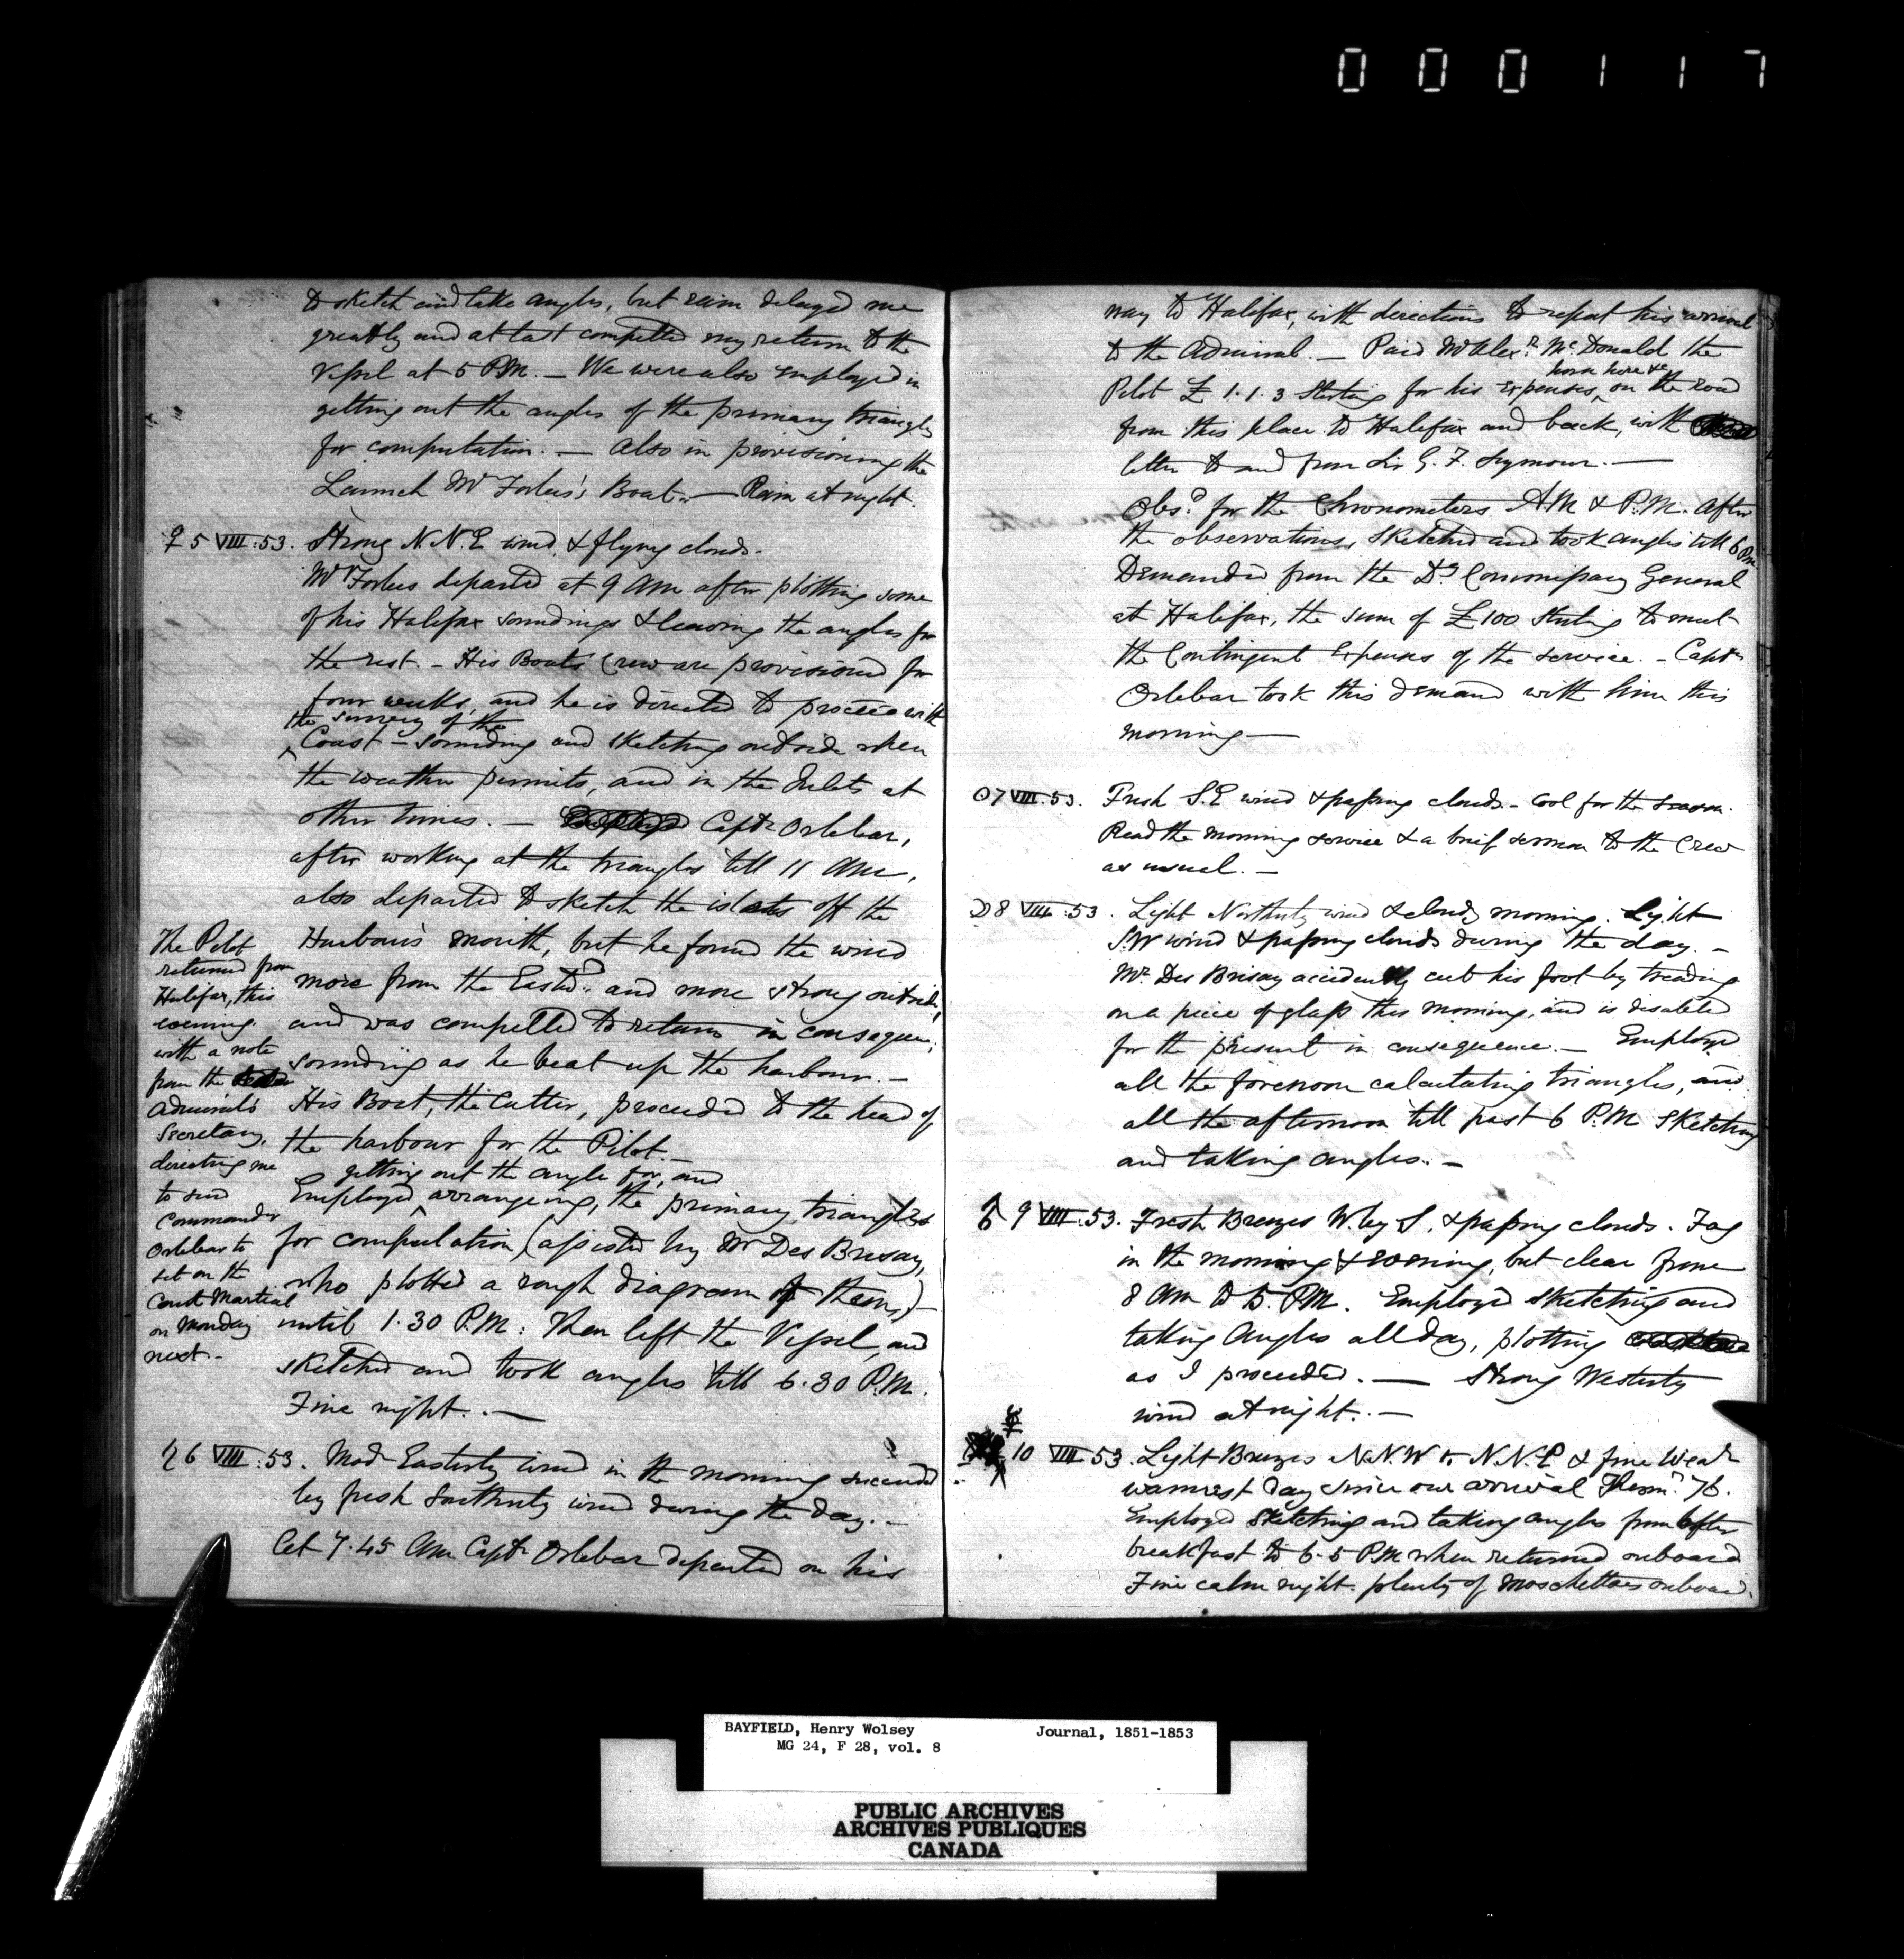 0 0 0 1 1 7
to sketch and take angles, but rain delayed me
greatly and at last compelled my return to the
Vessel at 5 P.M. — We were also employed in
getting out the angles of the primary triangles
for computation. — Also in provisioning the
Launch Mr Forbes's Boat. — Rain at night.
♀ 5 VIII. 53. Strong N.N.E wind & flying clouds.
Mr Forbes departed at 9 AM after plotting some
of his Halifax soundings & leaving the angles for
the rest. – His Boats Crew are provisioned for
four weeks, and he is directed to proceed with
the survey of the
^ Coast – sounding and sketching outside when
the weather permits, and in the Inlets at
other times. — Captn Orlebar,
after working at the triangles till 11 AM,
also departed to sketch the islets off the
Harbour's mouth, but he found the wind
more from the Eastd. and more strong outside,
and was compelled to return in consequence,
sounding as he beat up the harbour. –
His Boat, the Cutter, proceeded to the head of
the harbour for the Pilot. –
getting out the angle for, and
Employed ^ arrangeing, the primary triangles
for computation (assisted by Mr Des Brisay,
who plotted a rough diagram of them,)
until 1.30 P.M. Then left the Vessel, and
sketched and took angles till 6.30 P.M.
Fine night. —
The Pilot
returned from
Halifax, this
evening.
with a note
from the
Admiral's
Secretary,
directing me
to send
Commander
Orlebar to
set on the
Court Martial
on Monday
next –
♄ 6 VIII. 53. Modr Easterly wind in the morning succeeded
by fresh Southerly wind during the day. –
At 7.45 AM Captn Orlebar departed on his
way to Halifax, with directions to report his arrival
to the Admiral. — Paid Mr Alexr. McDonald the
horse hire &c
Pilot £ 1.1.3 Sterling for his expenses ^ on the road
from this place to Halifax and back, with
letter to and from Sir G. F. Seymour. —
Obsd. for the Chronometers A.M & P.M. After
the observations, sketched and took angles till 6 PM
Demanded from the Dy Commissary General
at Halifax, the sum of £100 Sterling to meet
the Contingent Expenses of the service. – Captn
Orlebar took this demand with him this
morning —
☉ 7 VIII. 53. Fresh S.E wind & passing clouds – Cool for the season.
Read the morning service & a brief sermon to the Crew
as usual. –
☽ 8 VIII. 53. Light Northerly wind & cloudy morning. Light
S.W wind & passing clouds during the day. –
Mr. Des Brisay accidently cut his foot by treading
on a piece of glass this morning, and is disabled
for the present in consequence. – Employed
all the forenoon calculating triangles, and
all the afternoon till past 6 P.M sketching
and taking angles. –
♂ 9 VIII. 53. Fresh Breezes W. by S, & passing clouds. Fog
in the morning & evening, but clear from
8 AM to 5 P.M. Employed sketching and
taking Angles all day, plotting
as I proceeded. — Strong Westerly
wind at night. –
☿ 10 VIII 53. Light Breezes N.N.W to N.N.E & fine Weathr
warmest day since our arrival Thermr. 76.
Employed sketching and taking angles from after
breakfast to 6.5 P.M when returned onboard
Fine calm night. plenty of Moschettoes onboard.
BAYFIELD, Henry Wolsey Journal, 1851-1853
MG 24, F 28, vol. 8
PUBLIC ARCHIVES
ARCHIVES PUBLIQUES
CANADA